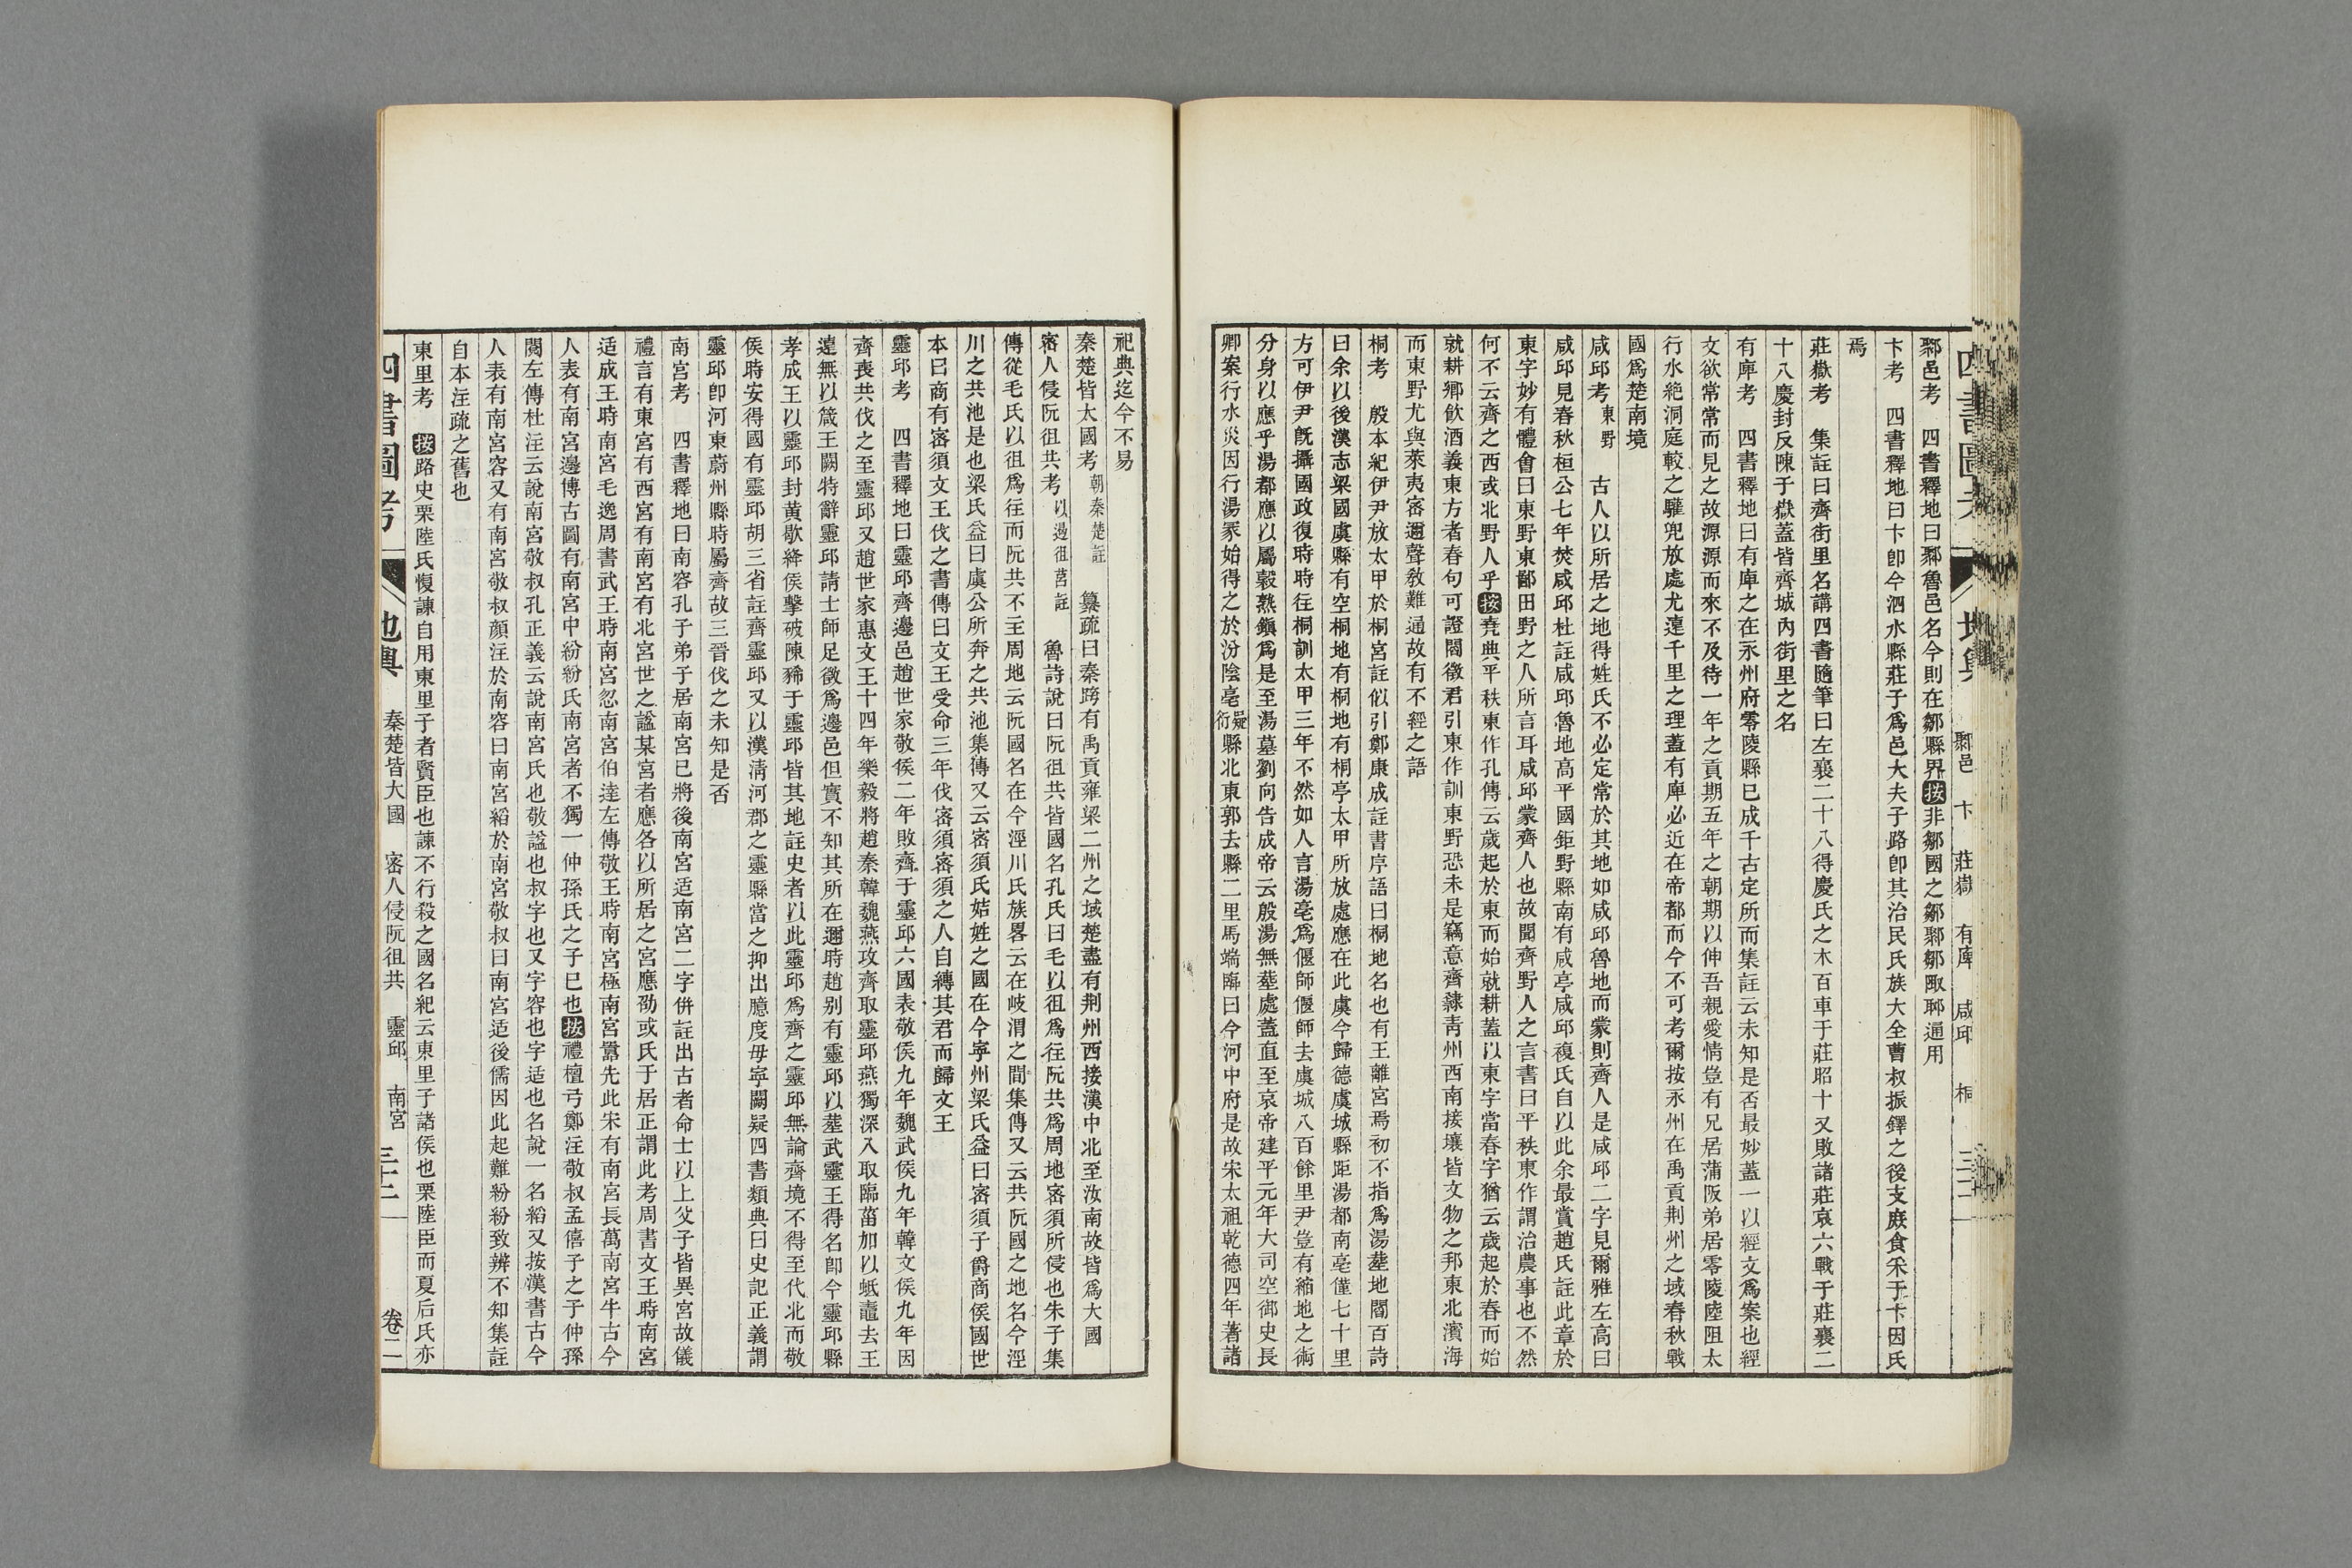 四書圖考 地輿 郰邑 卞 莊嶽 有庳 咸邱 桐
郰邑考 四書釋地曰郰魯邑名今則在鄒縣界按非鄒國之鄒郰鄹陬聊通用
卞考 四書釋地曰卞卽今泗水縣莊子爲邑大夫子路卽其治民氏族大全曹叔振鐸之後支庶食采于卞因氏
焉
莊嶽考 集註曰齊街里名講四書隨筆曰左襄二十八得慶氏之木百車于莊昭十又敗諸莊哀六戰于莊襄二
十八慶封反陳于嶽蓋皆齊城內街里之名
有庳考 四書釋地曰有庳之在永州府零陵縣已成千古定所而集註云未知是否最妙蓋一以經文爲案也經
文欲常常而見之故源源而來不及待一年之貢期五年之朝期以伸吾親愛情豈有兄居蒲阪弟居零陵陸阻太
行水絶洞庭較之驩兜放處尤遠千里之理蓋有庳必近在帝都而今不可考爾按永州在禹貢荆州之域春秋戰
國爲楚南境
咸邱考 東野 古人以所居之地得姓氏不必定常於其地如咸邱魯地而蒙則齊人是咸邱二字見爾雅左高曰
咸邱見春秋桓公七年焚咸邱杜註咸邱魯地高平國鉅野縣南有咸亭咸邱複氏自以此余最賞趙氏註此章於
東字妙有體會曰東野東鄙田野之人所言耳咸邱蒙齊人也故聞齊野人之言書曰平秩東作謂治農事也不然
何不云齊之西或北野人乎按堯典平秩東作孔傳云歲起於東而始就耕蓋以東字當春字猶云歲起於春而始
就耕鄉飲酒義東方者春句可證閻徵君引東作訓東野恐未是竊意齊隸靑州西南接壤皆文物之邦東北濱海
而東野尤與萊夷密邇聲敎難通故有不經之語
桐考 殷本紀伊尹放太甲於桐宮註似引鄭康成註書序語曰桐地名也有王離宮焉初不指爲湯塟地閻百詩
曰余以後漢志梁國虞縣有空桐地有桐地有桐亭太甲所放處應在此虞今歸德虞城縣距湯都南亳僅七十里
方可伊尹旣攝國政復時時往桐訓太甲三年不然如人言湯亳爲偃師偃師去虞城八百餘里尹豈有縮地之術
分身以應乎湯都應以屬穀熟鎭爲是至湯墓劉向告成帝云殷湯無塟處蓋直至哀帝建平元年大司空御史長
卿案行水災因行湯冢始得之於汾陰亳疑衍縣北東郭去縣二里馬端臨曰今河中府是故宋太祖乾德四年著諸
祀典迄今不易
秦楚皆大國考 朝秦楚註 纂疏曰秦跨有禹貢雍梁二州之域楚盡有荆州西接漢中北至汝南故皆爲大國
密人侵阮徂共考 以遏徂莒註 魯詩說曰阮徂共皆國名孔氏曰毛以徂爲往阮共爲周地密須所侵也朱子集
傳從毛氏以徂爲往而阮共不主周地云阮國名在今涇川氏族畧云在岐渭之間集傳又云共阮國之地名今涇
川之共池是也梁氏益曰虞公所奔之共池集傳又云密須氏姞姓之國在今寧州梁氏益曰密須子爵商侯國世
本曰商有密須文王伐之書傳曰文王受命三年伐密須密須之人自縛其君而歸文王
靈邱考 四書釋地曰靈邱齊邊邑趙世家敬侯二年敗齊于靈邱六國表敬侯九年魏武侯九年韓文侯九年因
齊喪共伐之至靈邱又趙世家惠文王十四年樂毅將趙秦韓魏燕攻齊取靈邱燕獨深入取臨菑加以蚳鼃去王
遠無以箴王闕特辭靈邱請士師足徵爲邊邑但實不知其所在邇時趙别有靈邱以塟武靈王得名卽今靈邱縣
孝成王以靈邱封黃歇絳侯擊破陳豨于靈邱皆其地註史者以此靈邱爲齊之靈邱無論齊境不得至代北而敬
侯時安得國有靈邱胡三省註齊靈邱又以漢淸河郡之靈縣當之抑出臆度毋寧闕疑四書類典曰史記正義謂
靈邱卽河東蔚州縣時屬齊故三晉伐之未知是否
南宮考 四書釋地曰南容孔子弟子居南宮已將後南宮适南宮二字併註出古者命士以上父子皆異宮故儀
禮言有東宮有西宮有南宮有北宮世之謚某宮者應各以所居之宮應劭或氏于居正謂此考周書文王時南宮
适成王時南宮毛逸周書武王時南宮忽南宮伯達左傳敬王時南宮極南宮嚚先此宋有南宮長萬南宮牛古今
人表有南宮邊博古圖有南宮中紛紛氏南宮者不獨一仲孫氏之子已也按禮檀弓鄭注敬叔孟僖子之子仲孫
閱左傳杜注云說南宮敬叔孔正義云說南宮氏也敬謚也叔字也又字容也字适也名說一名縚又按漢書古今
人表有南宮容又有南宮敬叔顔注於南容曰南宮縚於南宮敬叔曰南宮适後儒因此起難紛紛致辨不知集註
自本注疏之舊也
東里考 按路史栗陸氏愎諫自用東里子者賢臣也諫不行殺之國名紀云東里子諸侯也栗陸臣而夏后氏亦
四書圖考 地輿 秦楚皆大國 密人侵阮徂共 靈邱 南宮 三十二 卷二